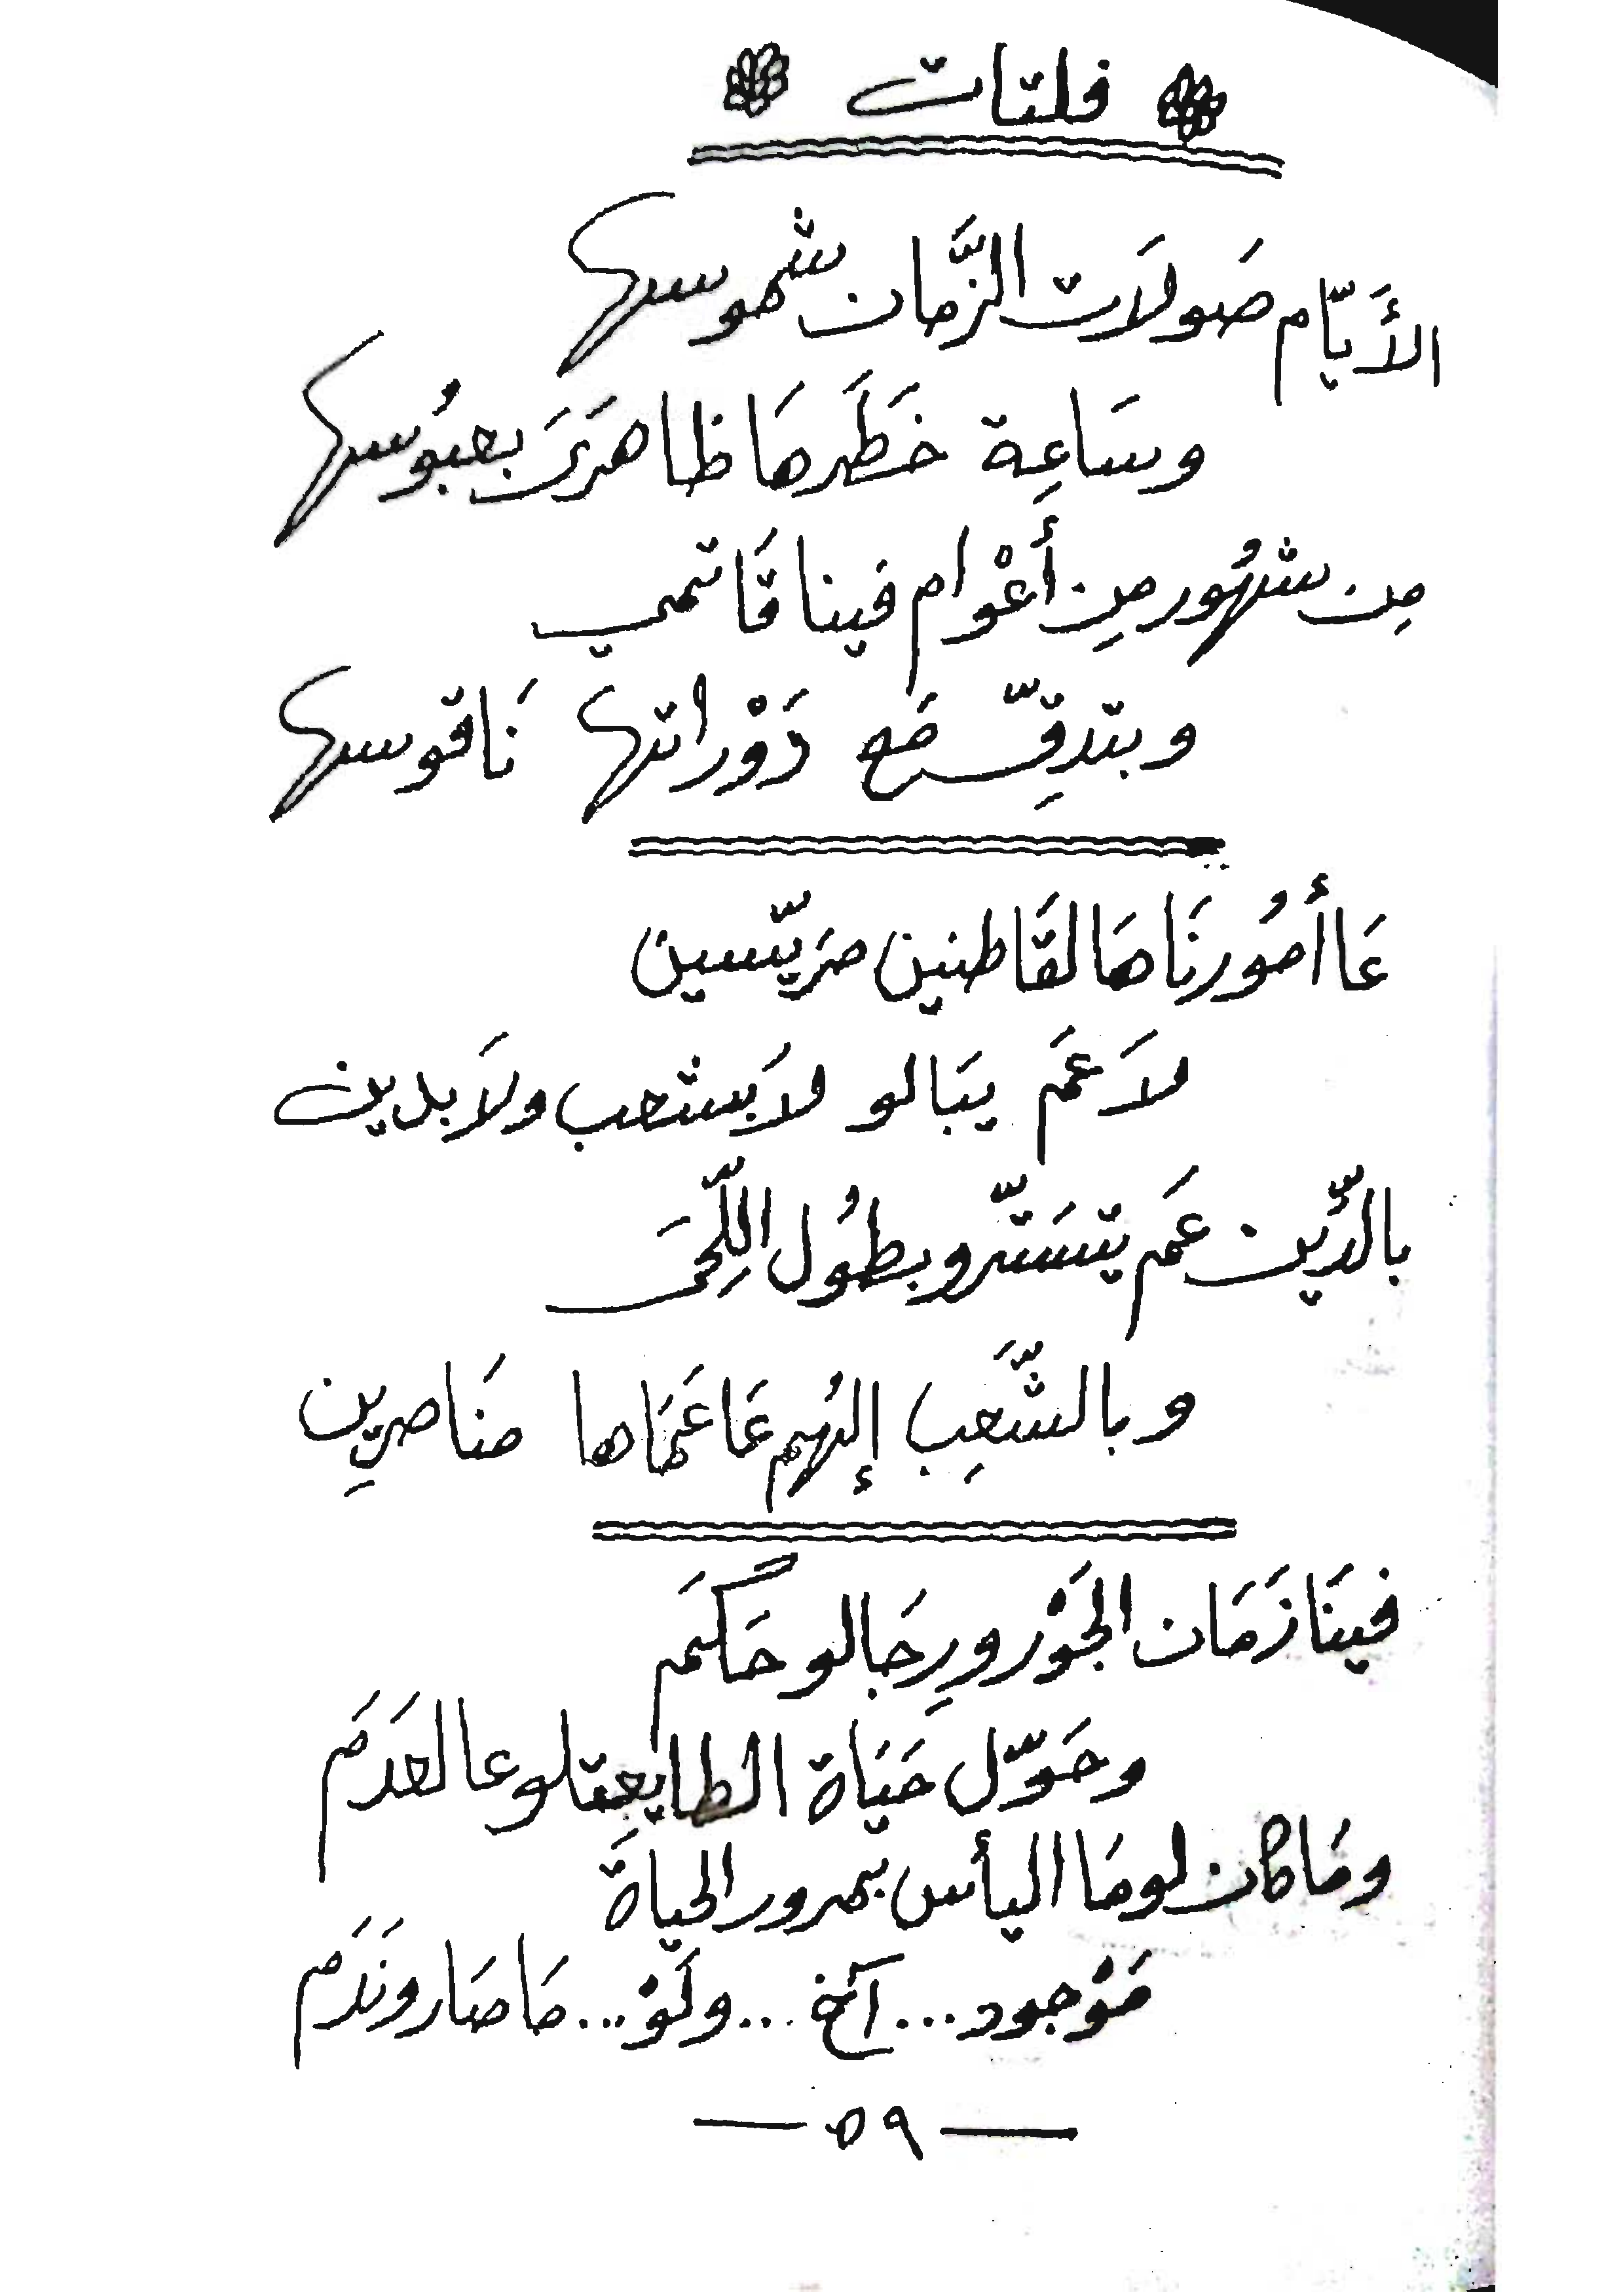 فلتات
الأَيّام صَولاَت الزَّمان شموسها
وسَاعِة خَطَرهَا ظاهرَىَ بعبُوسها
مِن شهُور مِن أَعْوام فينا قَاتمي
وبتدقِّ مَع دَوْراتها نَاقوسها
عَا أمُورنَا هَالقَاطنين مريّسين
لاَ عَم يبَالو لاَ بشعب ولاَ بدين
بالدِّين عَم يتسَتّرو بطُول اللِّحَى
وبالشَّعِب إلهُم عَا عَمَاها مناصرِين
فينَا زَمَان الجَوْر ورِجَالو حَكَم
وحَوّل حَيَاة الطايعتلو عالعَدَم
ومَا كان لومَا اليأس بمرور الحياةَ
مَوْجود... آخ ...ولَوْ... مَا صَار ونَدَم
— ٥٩ —